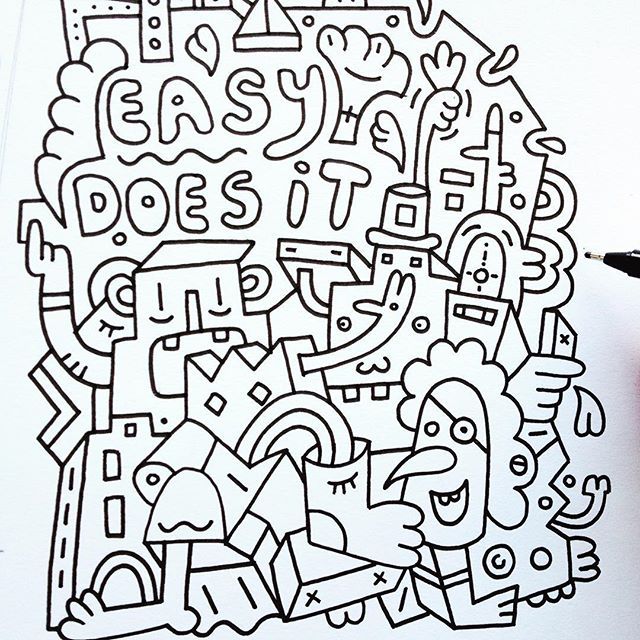 EASY
DOES iT